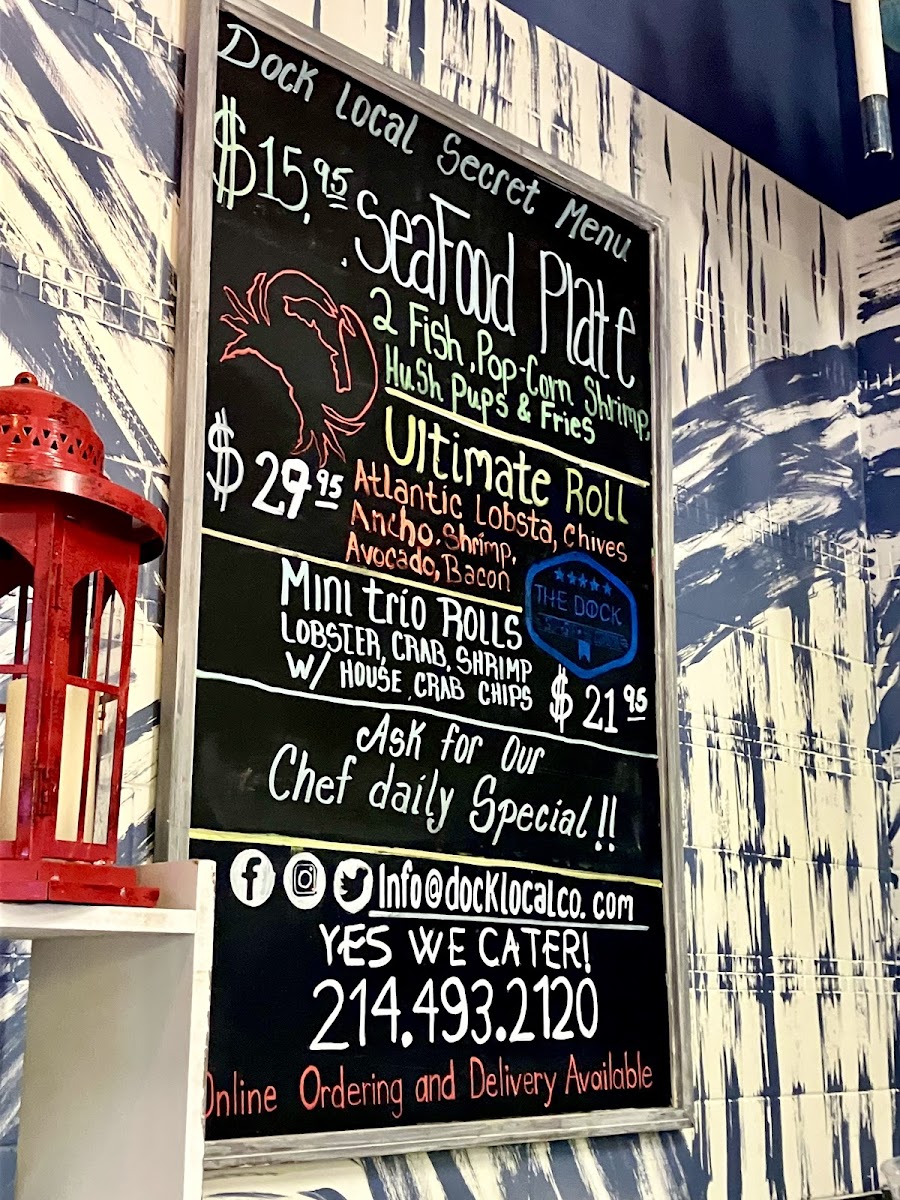 Dock Local Secret Menu
$15.95
SeaFood Plate
2 Fish, Pop-Corn Shrimp,
Hush Pups & Fries
Ultimate Roll
$29.95
Atlantic Lobsta, Chives
Ancho, Shrimp,
Avocado, Bacon
THE DOCK
Mini trio ROLLS
LOBSTER, CRAB, SHRIMP
W/ HOUSE CRAB CHIPS
$21.95
Ask for Our
Chef daily Special!!
Info@docklocalco.com
YES WE CATER!
214.493.2120
Online Ordering and Delivery Available